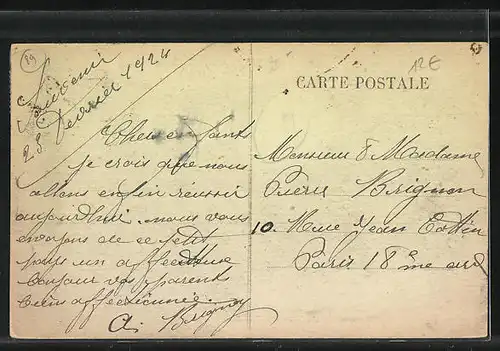 89
12€
Souvenir
23 fevrier 1924
CARTE POSTALE
Chers enfants
je crois que nous
allons enfin réussir
aujourd'hui. nous vous
envoyons de ce petit
pays un affectueux
bonjour vos parents
bien affectionnés
A. Brignon
Monsieur & Madame
Pierre Brignon
10. Rue Jean Cottin
Paris 18ème ard